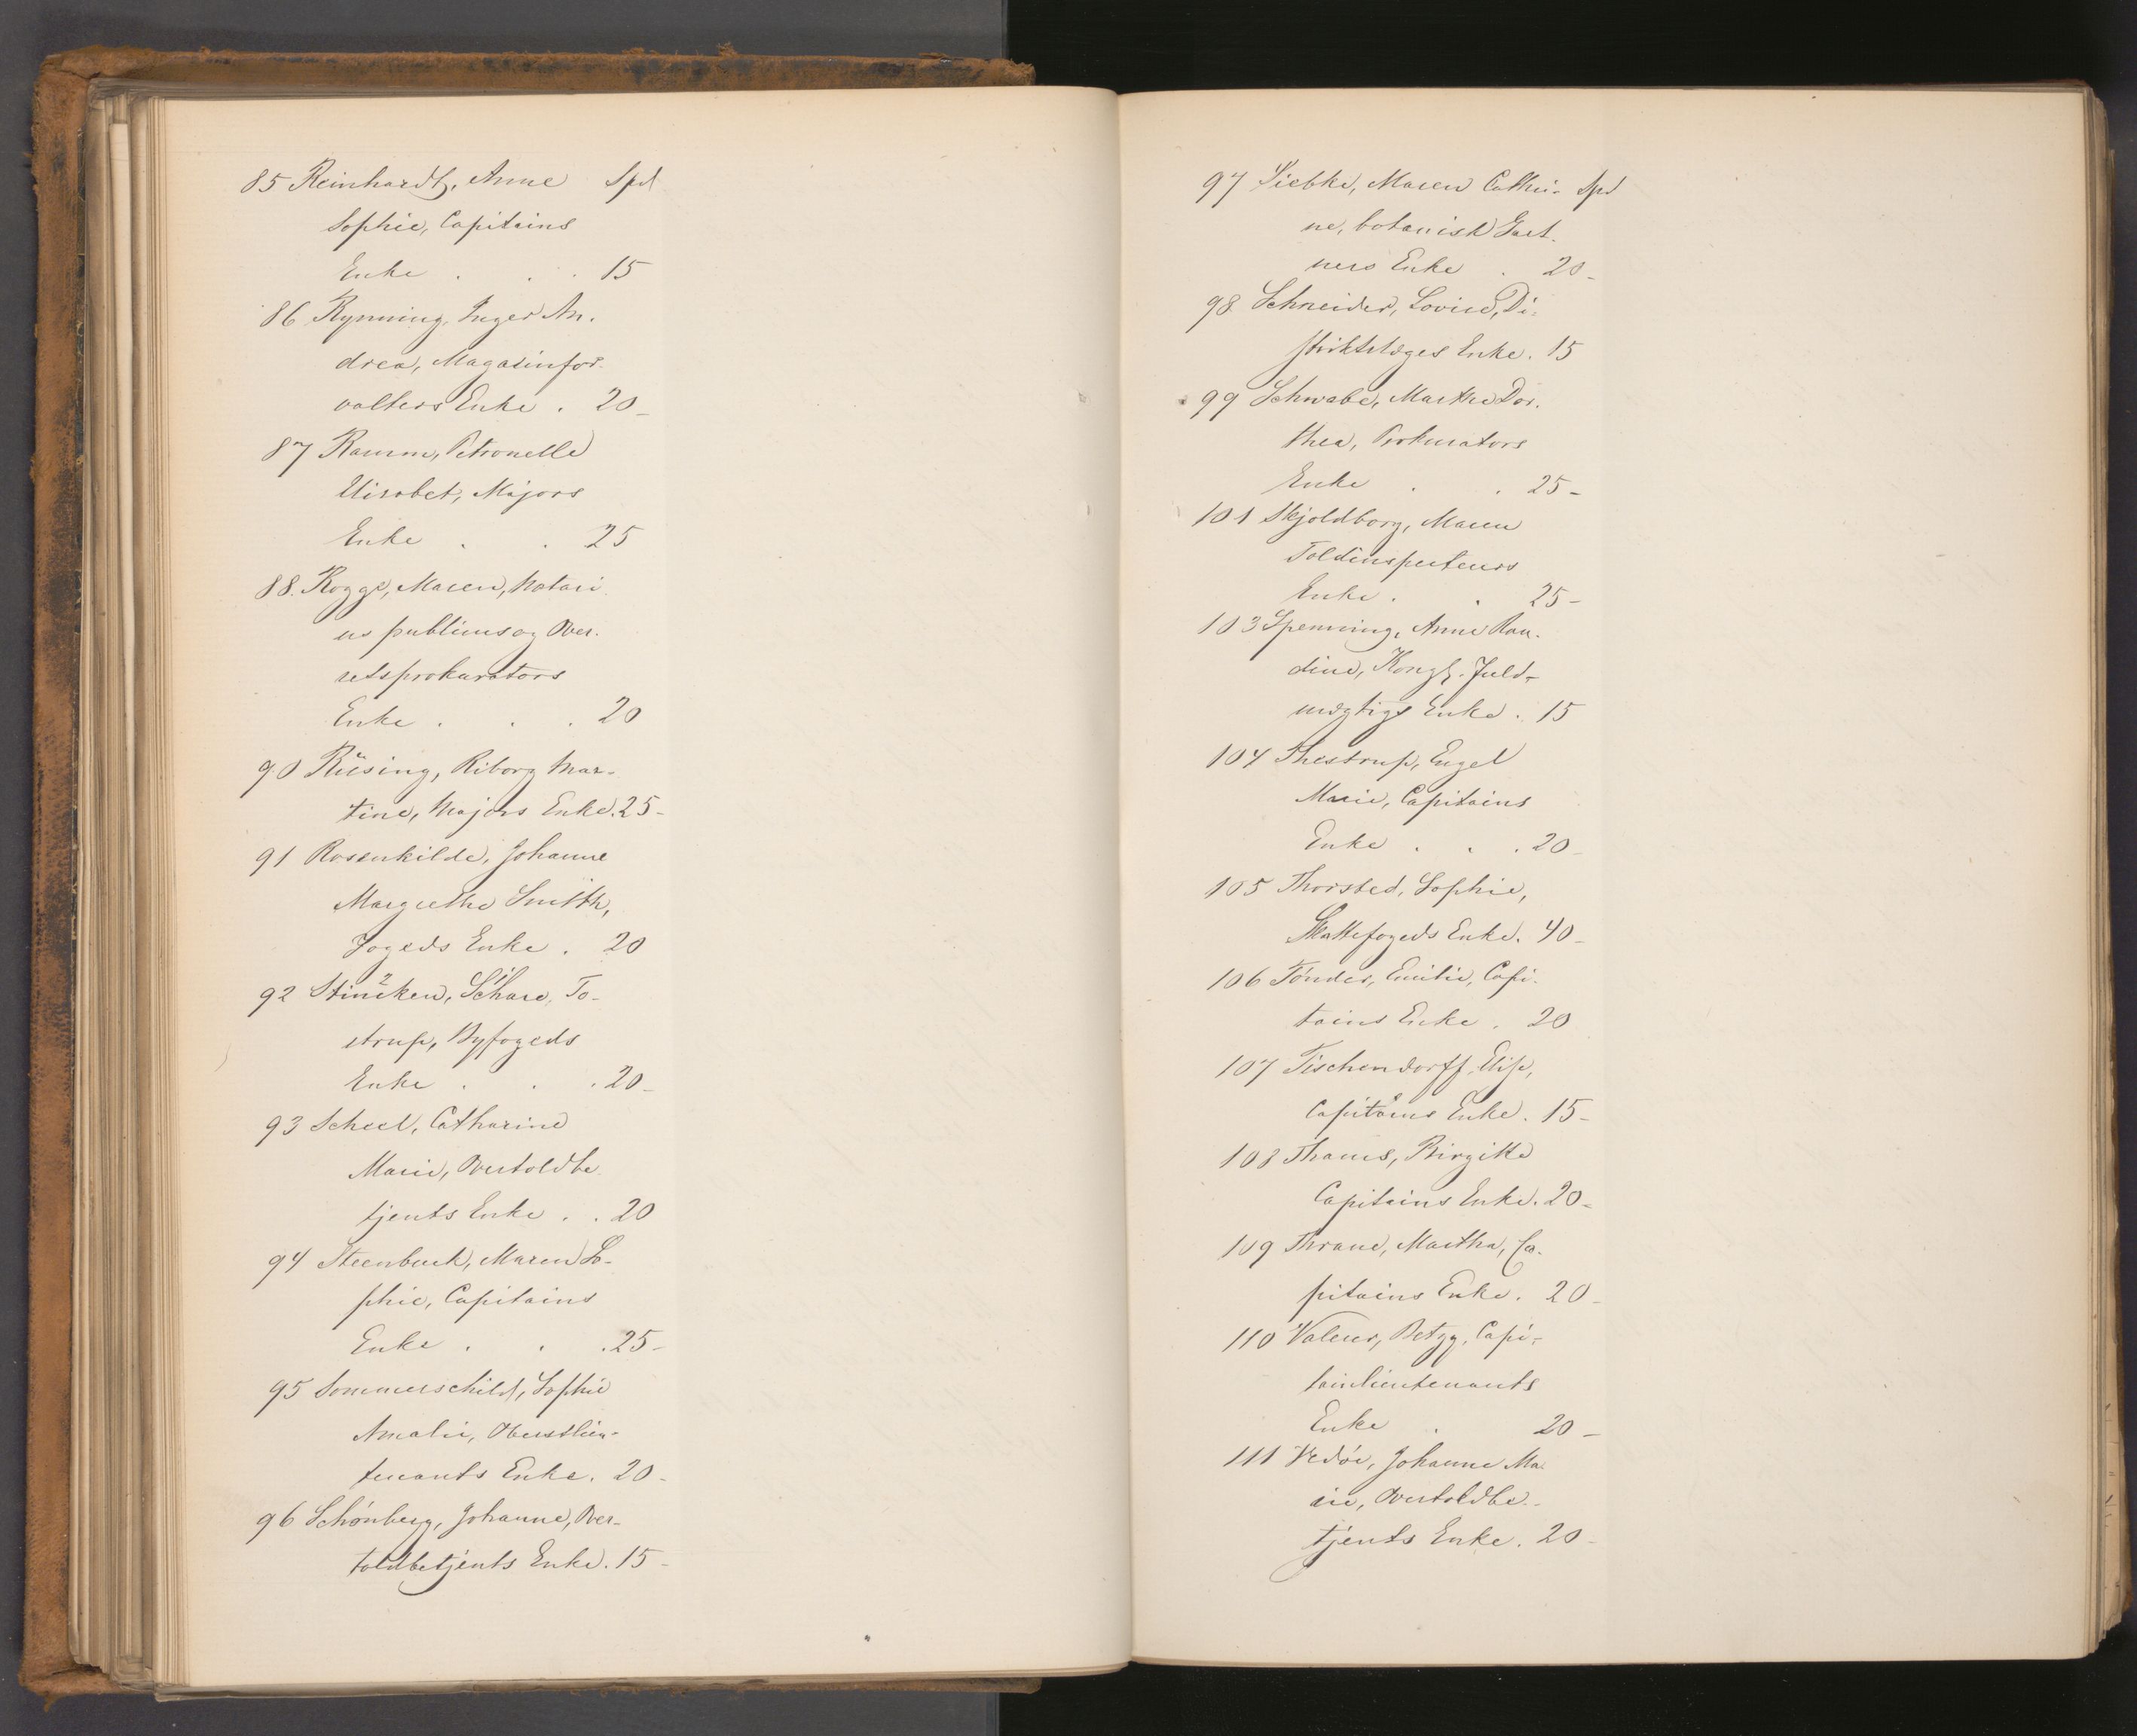 85 Reinhardt, Anne Spd
Sophie, Capitains
Enke . . . 15
86 Rynning, Inger An-
drea, Magasinfor-
valters Enke . 20-
87 Ramm, Petronelle
Elisabet, Majors
Enke . . 25
88. Rogge, Maren, Notari
us publicus og Over-
retsprokurators
Enke . . . 20
90 Rüsing, Riborg Mar-
tine, Majors Enke. 25-
91 Rosenkilde, Johanne
Margrethe Smith,
Fogeds Enke . 20
92 To-
strup, Byfogeds
Enke . . . 20-
93 Scheel, Catharine
Marie, Overtoldbe
tjents Enke . . 20
94 Steenbuck, Maren So-
phie, Capitains
Enke . . . 25-
95 Sommerschild, Sophie
Amalie, Oberstlieu-
tenants Enke. 20-
96 Schönberg, Johanne, Over-
toldbetjents Enke. 15-
97 Siebke, Maren Cathri- Spd
ne, botanisk Gart-
ners Enke . 20-
98 Schneider, Lovise, Di-
striktslæges Enke. 15
99 Schwabe, Marthe Dor-
thea, Prokurators
Enke . . 25-
101 Skjoldborg, Maren
Toldinspecteurs
Enke . . 25-
103 Spenning, Anne Ran-
dine, Kongl. Fuld-
mægtigs Enke . 15
104 Thestrup, Engel
Marie, Capitains
Enke . . . 20-
105 Thorsted, Sophie,
Skattefogeds Enke. 40-
106 Tönder, Emilie, Capi-
tains Enke . 20
107 Tischendorff, Elise,
Capitains Enke. 15-
108 Thams, Birgitte
Capitains Enke. 20-
109 Thrane, Martha, Ca-
pitains Enke. 20-
110 Valeur, Betzy, Capi-
tainlieutenants
Enke . 20-
111 Vedöe, Johanne Ma-
rie, Overtoldbe-
tjents Enke. 20-